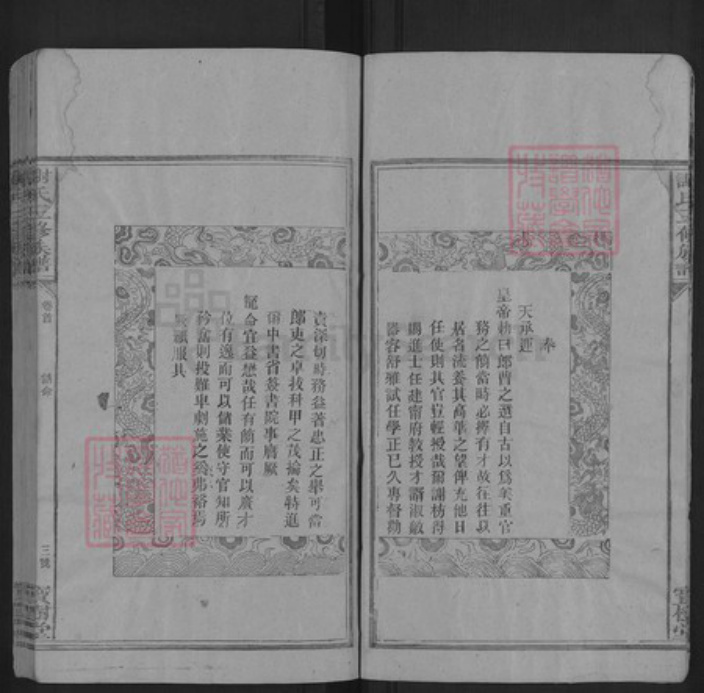 奉
天承運
皇帝勅曰郎曹之選自古以爲榮重官
務之簡當時必擇有才故往往以
居名流養其高華之望俾充他日
任使則其官豈輕授哉爾謝枋得
賜進士任建甯府教授才諝淑敏
器容舒雅試任學正已久專督勸
責深切時務益著忠正之舉可當
郎吏之卓拔科甲之茂掄矣特進
爾中書省簽書院事膺厥
寵命宜益懋哉任有簡而可以廣才
位有逸而可以儲業使守官知所
矜奮則投難卑劇施之爲恢裕焉
欽哉服具
謝氏五修族譜
卷首
誥命
三號
寶樹堂